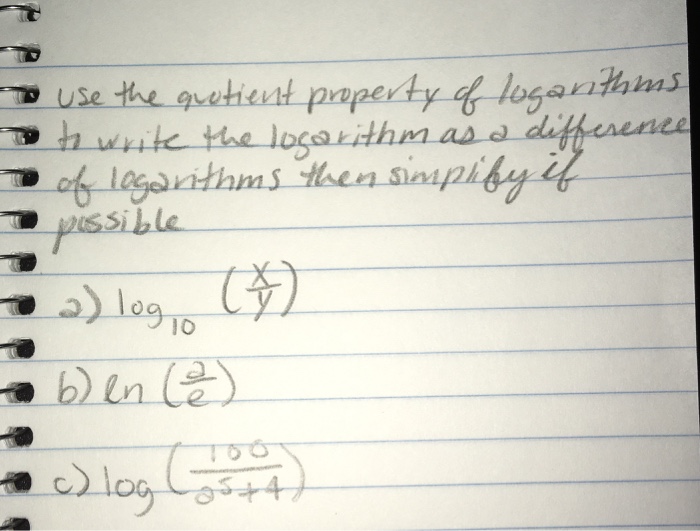 use the quotient property of logarithms
to write the logarithm as a difference
of logarithms then simplify if
possible
a) log₁₀ (x/y)
b) ln (a/e)
c) log (100/a⁵+4)